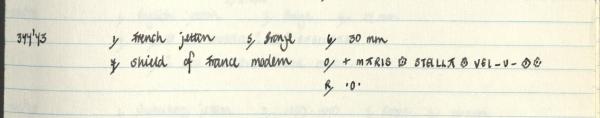 344'43 1, French jetton 5, Bronze 6, 30 mm
7, shield of France modern O, + MARIS ⚙ STELLA ⚙ VEL-U-⚙⚙
R, ·O·